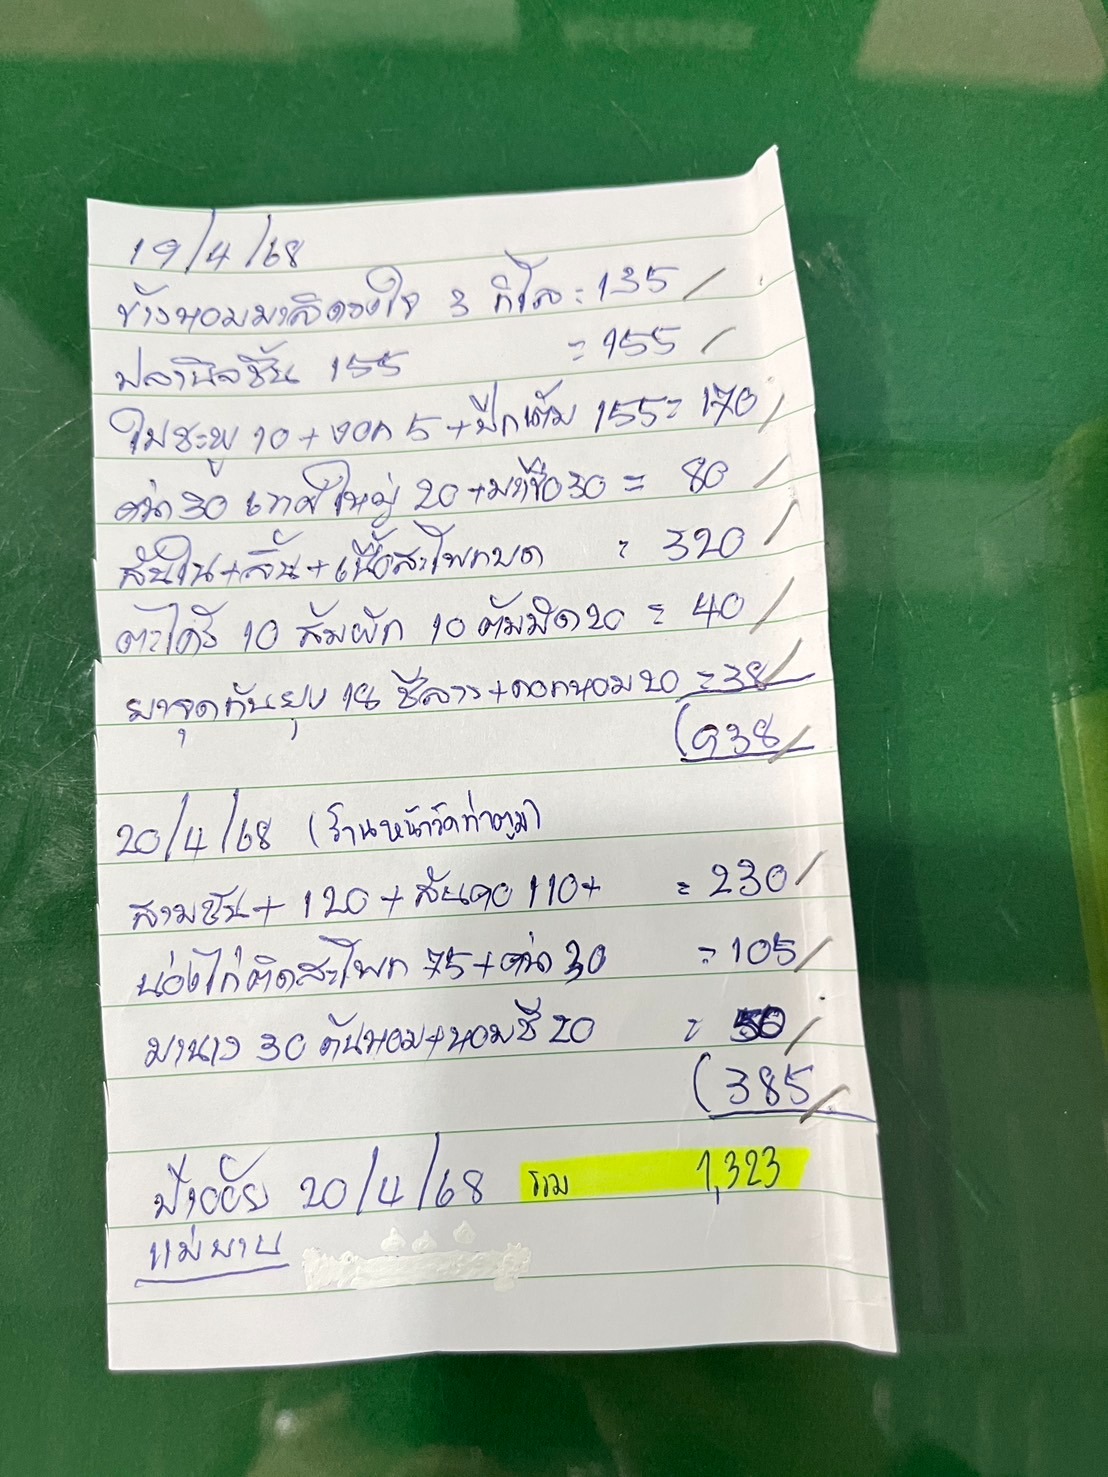 19/4/68
ข้าวหอมมะลิดวงใจ 3 กิโล = 135
ปลานิลชิ้น 155 = 155
ใบชะพู 10 + งอก 5 + ปีกเต็ม 155 = 170
คะน้า 30 เทศใหญ่ 20 + มะเขือ 30 = 80
สันใน + ลิ้น + เนื้อสะโพกบด = 320
ตะไคร้ 10 ส้มผัก 10 ตับมิด 20 = 40
ยาจุดกันยุง 18 ชีลาว + ดอกหอม 20 = 38
(938
20/4/68 (ร้านหน้าวัดท่าตูม)
สามชั้น + 120 + สันคอ 110 + = 230
น่องไก่ติดสะโพก 75 + คะน้า 30 = 105
มะนาว 30 ต้นหอม + หอมชี 20 = 50
(385
ป้าออย 20/4/68 รวม 1,323
แม่บ้าน